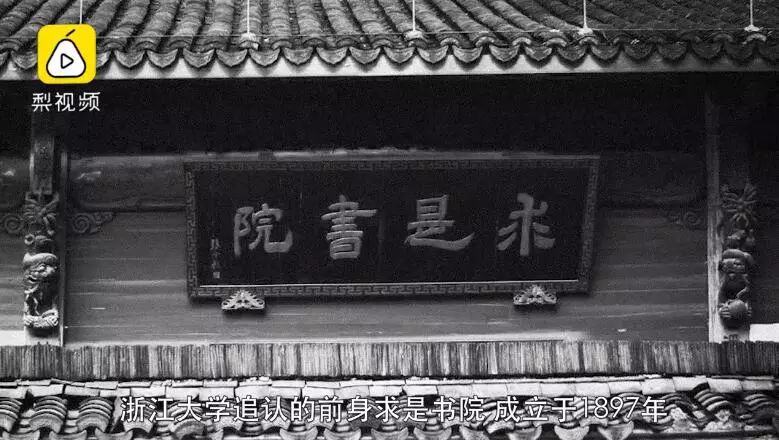 梨视频
求是書院
浙江大学追认的前身求是书院,成立于1897年